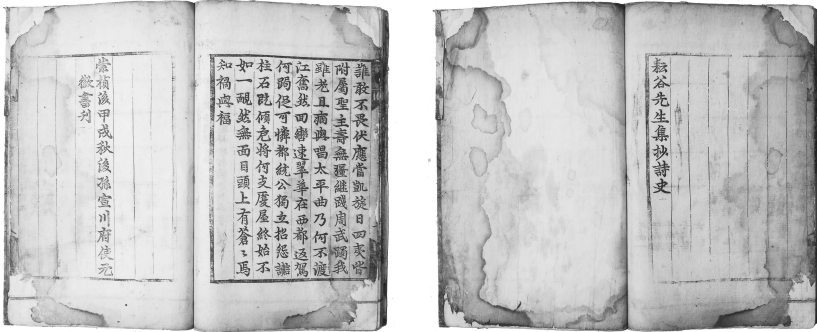 耘谷先生集抄詩史
誰敢不畏伏應當凱旋日四夷皆
附屬聖主壽無疆繼踐周武躅我
雖老且病與唱太平曲乃何不渡
江奮然回轡速翠華在西都返駕
何跼促可憐都統公獨立招怨讟
柱石旣傾危將何支厦屋終始不
如一靦然無面目頭上有蒼〻焉
知禍與福
崇禎後甲戌秋後孫宣川府使元
徵書刋